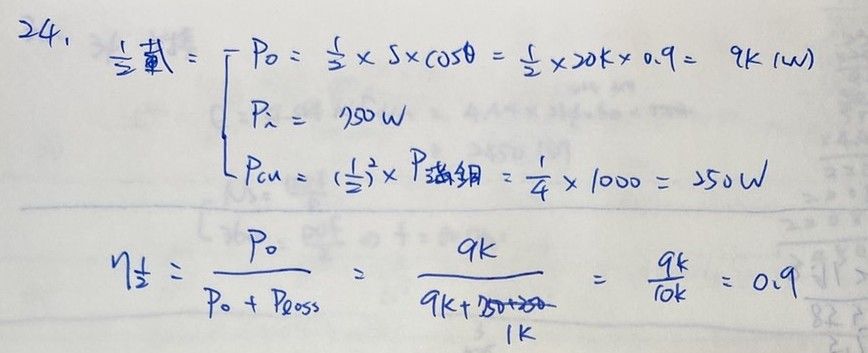 24.
½載 = P₀ = ½ × S × cosθ = ½ × 20K × 0.9 = 9K (W)
Pᵢ = 750W
Pcu = (½)² × P滿銅 = ¼ × 1000 = 250W
η½ = P₀ / (P₀ + Pℓoss) = 9K / (9K + 1K) = 9k / 10k = 0.9